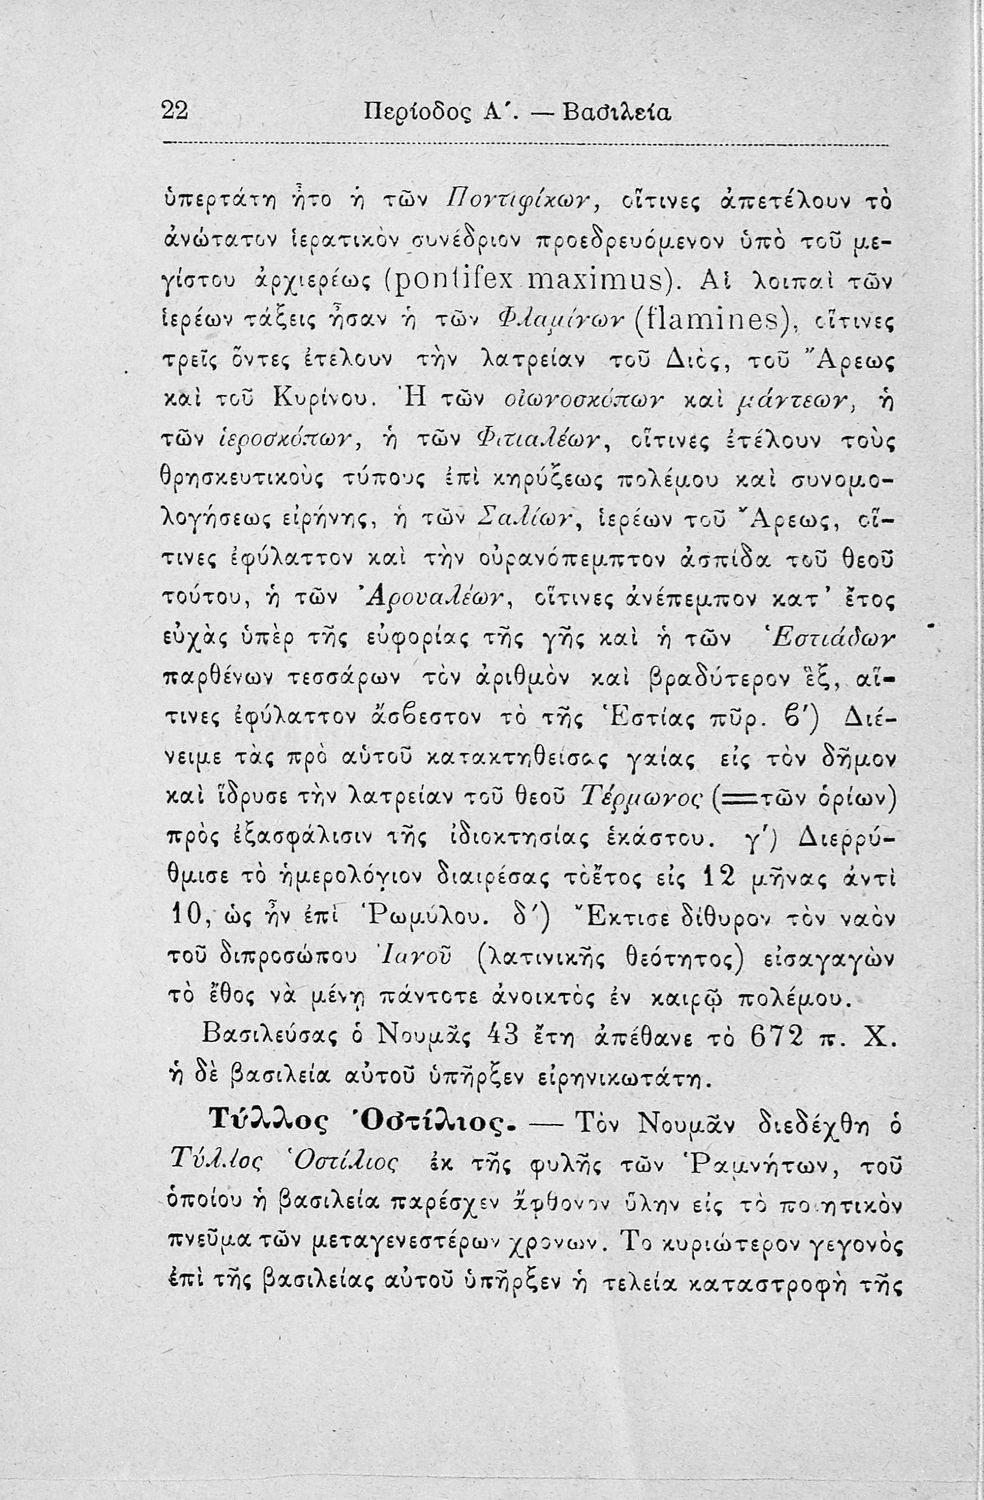 22 Περίοδος Α΄. — Βασιλεία
ὑπερτάτη ἦτο ἡ τῶν Ποντιφίκων, οἵτινες ἀπετέλουν τὸ
ἀνώτατον ἱερατικὸν συνέδριον προεδρευόμενον ὑπὸ τοῦ με-
γίστου ἀρχιερέως (pontifex maximus). Αἱ λοιπαὶ τῶν
ἱερέων τάξεις ἦσαν ἡ τῶν Φλαμίνων (flamines), οἵτινες
τρεῖς ὄντες ἐτέλουν τὴν λατρείαν τοῦ Διός, τοῦ Ἄρεως
καὶ τοῦ Κυρίνου. Ἡ τῶν οἰωνοσκόπων καὶ μάντεων, ἡ
τῶν ἱεροσκόπων, ἡ τῶν Φιτιαλέων, οἵτινες ἐτέλουν τοὺς
θρησκευτικοὺς τύπους ἐπὶ κηρύξεως πολέμου καὶ συνομο-
λογήσεως εἰρήνης, ἡ τῶν Σαλίων, ἱερέων τοῦ Ἄρεως, οἵ-
τινες ἐφύλαττον καὶ τὴν οὐρανόπεμπτον ἀσπίδα τοῦ θεοῦ
τούτου, ἡ τῶν Ἀρουαλέων, οἵτινες ἀνέπεμπον κατ᾽ ἔτος
εὐχὰς ὑπὲρ τῆς εὐφορίας τῆς γῆς καὶ ἡ τῶν Ἑστιάδων
παρθένων τεσσάρων τὸν ἀριθμὸν καὶ βραδύτερον ἓξ, αἵ-
τινες ἐφύλαττον ἄσβεστον τὸ τῆς Ἑστίας πῦρ. β΄) Διέ-
νειμε τὰς πρὸ αὑτοῦ κατακτηθείσας γαίας εἰς τὸν δῆμον
καὶ ἵδρυσε τὴν λατρείαν τοῦ θεοῦ Τέρμωνος (=τῶν ὁρίων)
πρὸς ἐξασφάλισιν τῆς ἰδιοκτησίας ἑκάστου. γ΄) Διερρύ-
θμισε τὸ ἡμερολόγιον διαιρέσας τὸἔτος εἰς 12 μῆνας ἀντὶ
10, ὡς ἦν ἐπὶ Ῥωμύλου. δ΄) Ἔκτισε δίθυρον τὸν ναὸν
τοῦ διπροσώπου Ἰανοῦ (λατινικῆς θεότητος) εἰσαγαγὼν
τὸ ἔθος νὰ μένῃ πάντοτε ἀνοικτὸς ἐν καιρῷ πολέμου.
Βασιλεύσας ὁ Νουμᾶς 43 ἔτη ἀπέθανε τὸ 672 π. Χ.
ἡ δὲ βασιλεία αὐτοῦ ὑπῆρξεν εἰρηνικωτάτη.
Τύλλος Ὁστίλιος. — Τὸν Νουμᾶν διεδέχθη ὁ
Τύλλος Ὁστίλιος ἐκ τῆς φυλῆς τῶν Ῥαμνήτων, τοῦ
ὁποίου ἡ βασιλεία παρέσχεν ἄφθονον ὕλην εἰς τὸ ποιητικὸν
πνεῦμα τῶν μεταγενεστέρων χρόνων. Τὸ κυριώτερον γεγονὸς
ἐπὶ τῆς βασιλείας αὐτοῦ ὑπῆρξεν ἡ τελεία καταστροφὴ τῆς